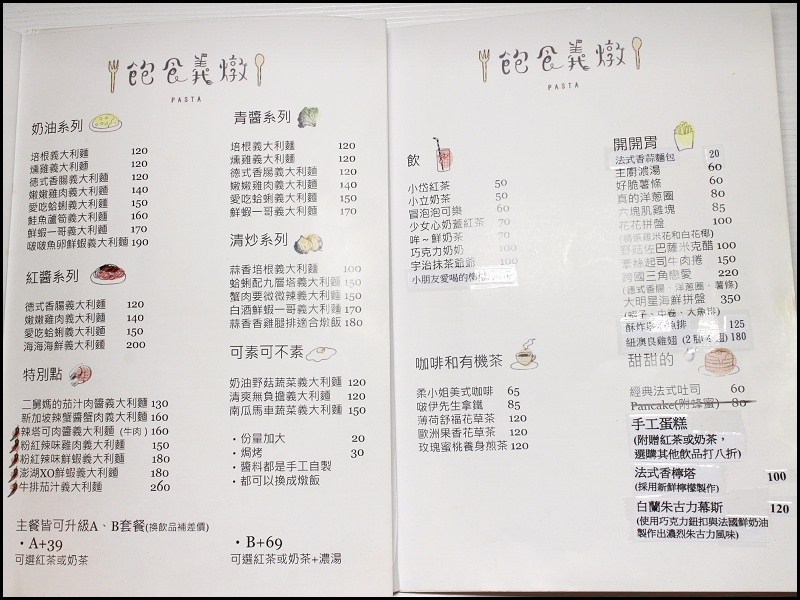 飽食義燉
PASTA
奶油系列
培根義大利麵 120
燻雞義大利麵 120
德式香腸義大利麵 120
嫩嫩雞肉義大利麵 140
愛吃蛤蜊義大利麵 150
鮭魚蘆筍義大利麵 160
鮮蝦一哥義大利麵 170
啵啵魚卵鮮蝦義大利麵 190
紅醬系列
德式香腸義大利麵 120
嫩嫩雞肉義大利麵 140
愛吃蛤蜊義大利麵 150
海海海鮮義大利麵 200
特別點
二舅媽的茄汁肉醬義大利麵 130
新加坡辣蟹醬蟹肉義大利麵 160
辣塔可肉醬義大利麵 (牛肉) 160
粉紅辣味雞肉義大利麵 150
粉紅辣味鮮蝦義大利麵 180
澎湖XO鮮蝦義大利麵 180
牛排茄汁義大利麵 260
主餐皆可升級A、B套餐(換飲品補差價)
・A+39
可選紅茶或奶茶
青醬系列
培根義大利麵 120
燻雞義大利麵 120
德式香腸義大利麵 120
嫩嫩雞肉義大利麵 140
愛吃蛤蜊義大利麵 150
鮮蝦一哥義大利麵 170
清炒系列
蒜香培根義大利麵 100
蛤蜊配九層塔義大利麵 150
蟹肉要微微辣義大利麵 150
白酒鮮蝦一哥義大利麵 170
蒜香香雞腿排適合燉飯 180
可素可不素
奶油野菇蔬菜義大利麵 120
清爽無負擔義大利麵 120
南瓜馬車蔬菜義大利麵 150
・份量加大 20
・焗烤 30
・醬料都是手工自製
・都可以換成燉飯
・B+69
可選紅茶或奶茶+濃湯
飽食義燉
PASTA
飲
小岱紅茶 50
小立奶茶 50
冒泡泡可樂 60
少女心奶蓋紅茶 70
哞～鮮奶茶 70
巧克力奶奶 100
宇治抹茶爺爺 100
小朋友愛喝的
咖啡和有機茶
柔小姐美式咖啡 65
啵伊先生拿鐵 85
薄荷舒福花草茶 120
歐洲果香花草茶 120
玫瑰蜜桃養身煎茶 120
開開胃
法式香蒜麵包 20
主廚濃湯 60
好脆薯條 60
真的洋蔥圈 80
六塊肌雞塊 85
花花拼盤 100
(酥酥雞米花和白花椰)
野菇佐巴薩米克醋 100
牽絲起司牛肉捲 150
跨國三角戀愛 220
(德式香腸、洋蔥圈、薯條)
大明星海鮮拼盤 350
125
紐澳良雞翅 180
甜甜的
經典法式吐司 60
Pancake(附蜂蜜) 80
手工蛋糕
(附贈紅茶或奶茶，
選購其他飲品打八折)
法式香檸塔 100
(採用新鮮檸檬製作)
白蘭朱古力慕斯 120
(使用巧克力鈕扣與法國鮮奶油
製作出濃烈朱古力風味)